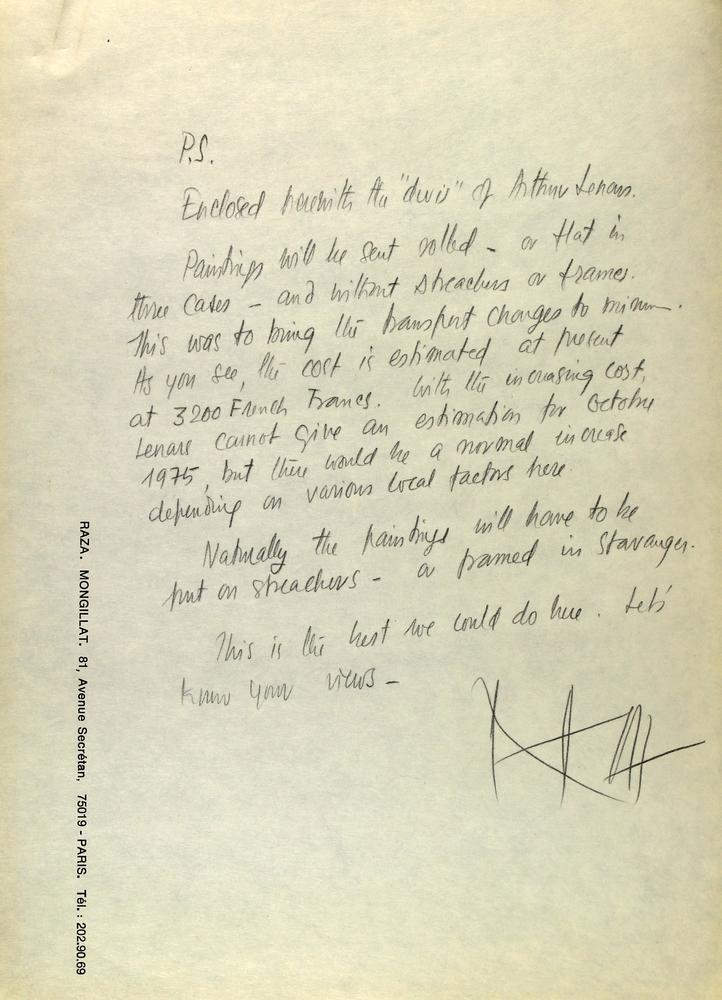 P.S.
Enclosed herewith the "devis" of Arthur Lenars.
Paintings will be sent rolled – or flat in
three cases – and without streachers or frames.
This was to bring the transport charges to minimum.
As you see, the cost is estimated at present
at 3200 French Francs. With the increasing cost,
Lenars cannot give an estimation for October
1975, but there would be a normal increase
depending on various local factors here.
Naturally the paintings will have to be
put on streachers – or framed in Stavanger.
This is the best we could do here. Let's
know your views –
RAZA. MONGILLAT. 81, Avenue Secrétan, 75019 - PARIS. Tél. : 202.90.69